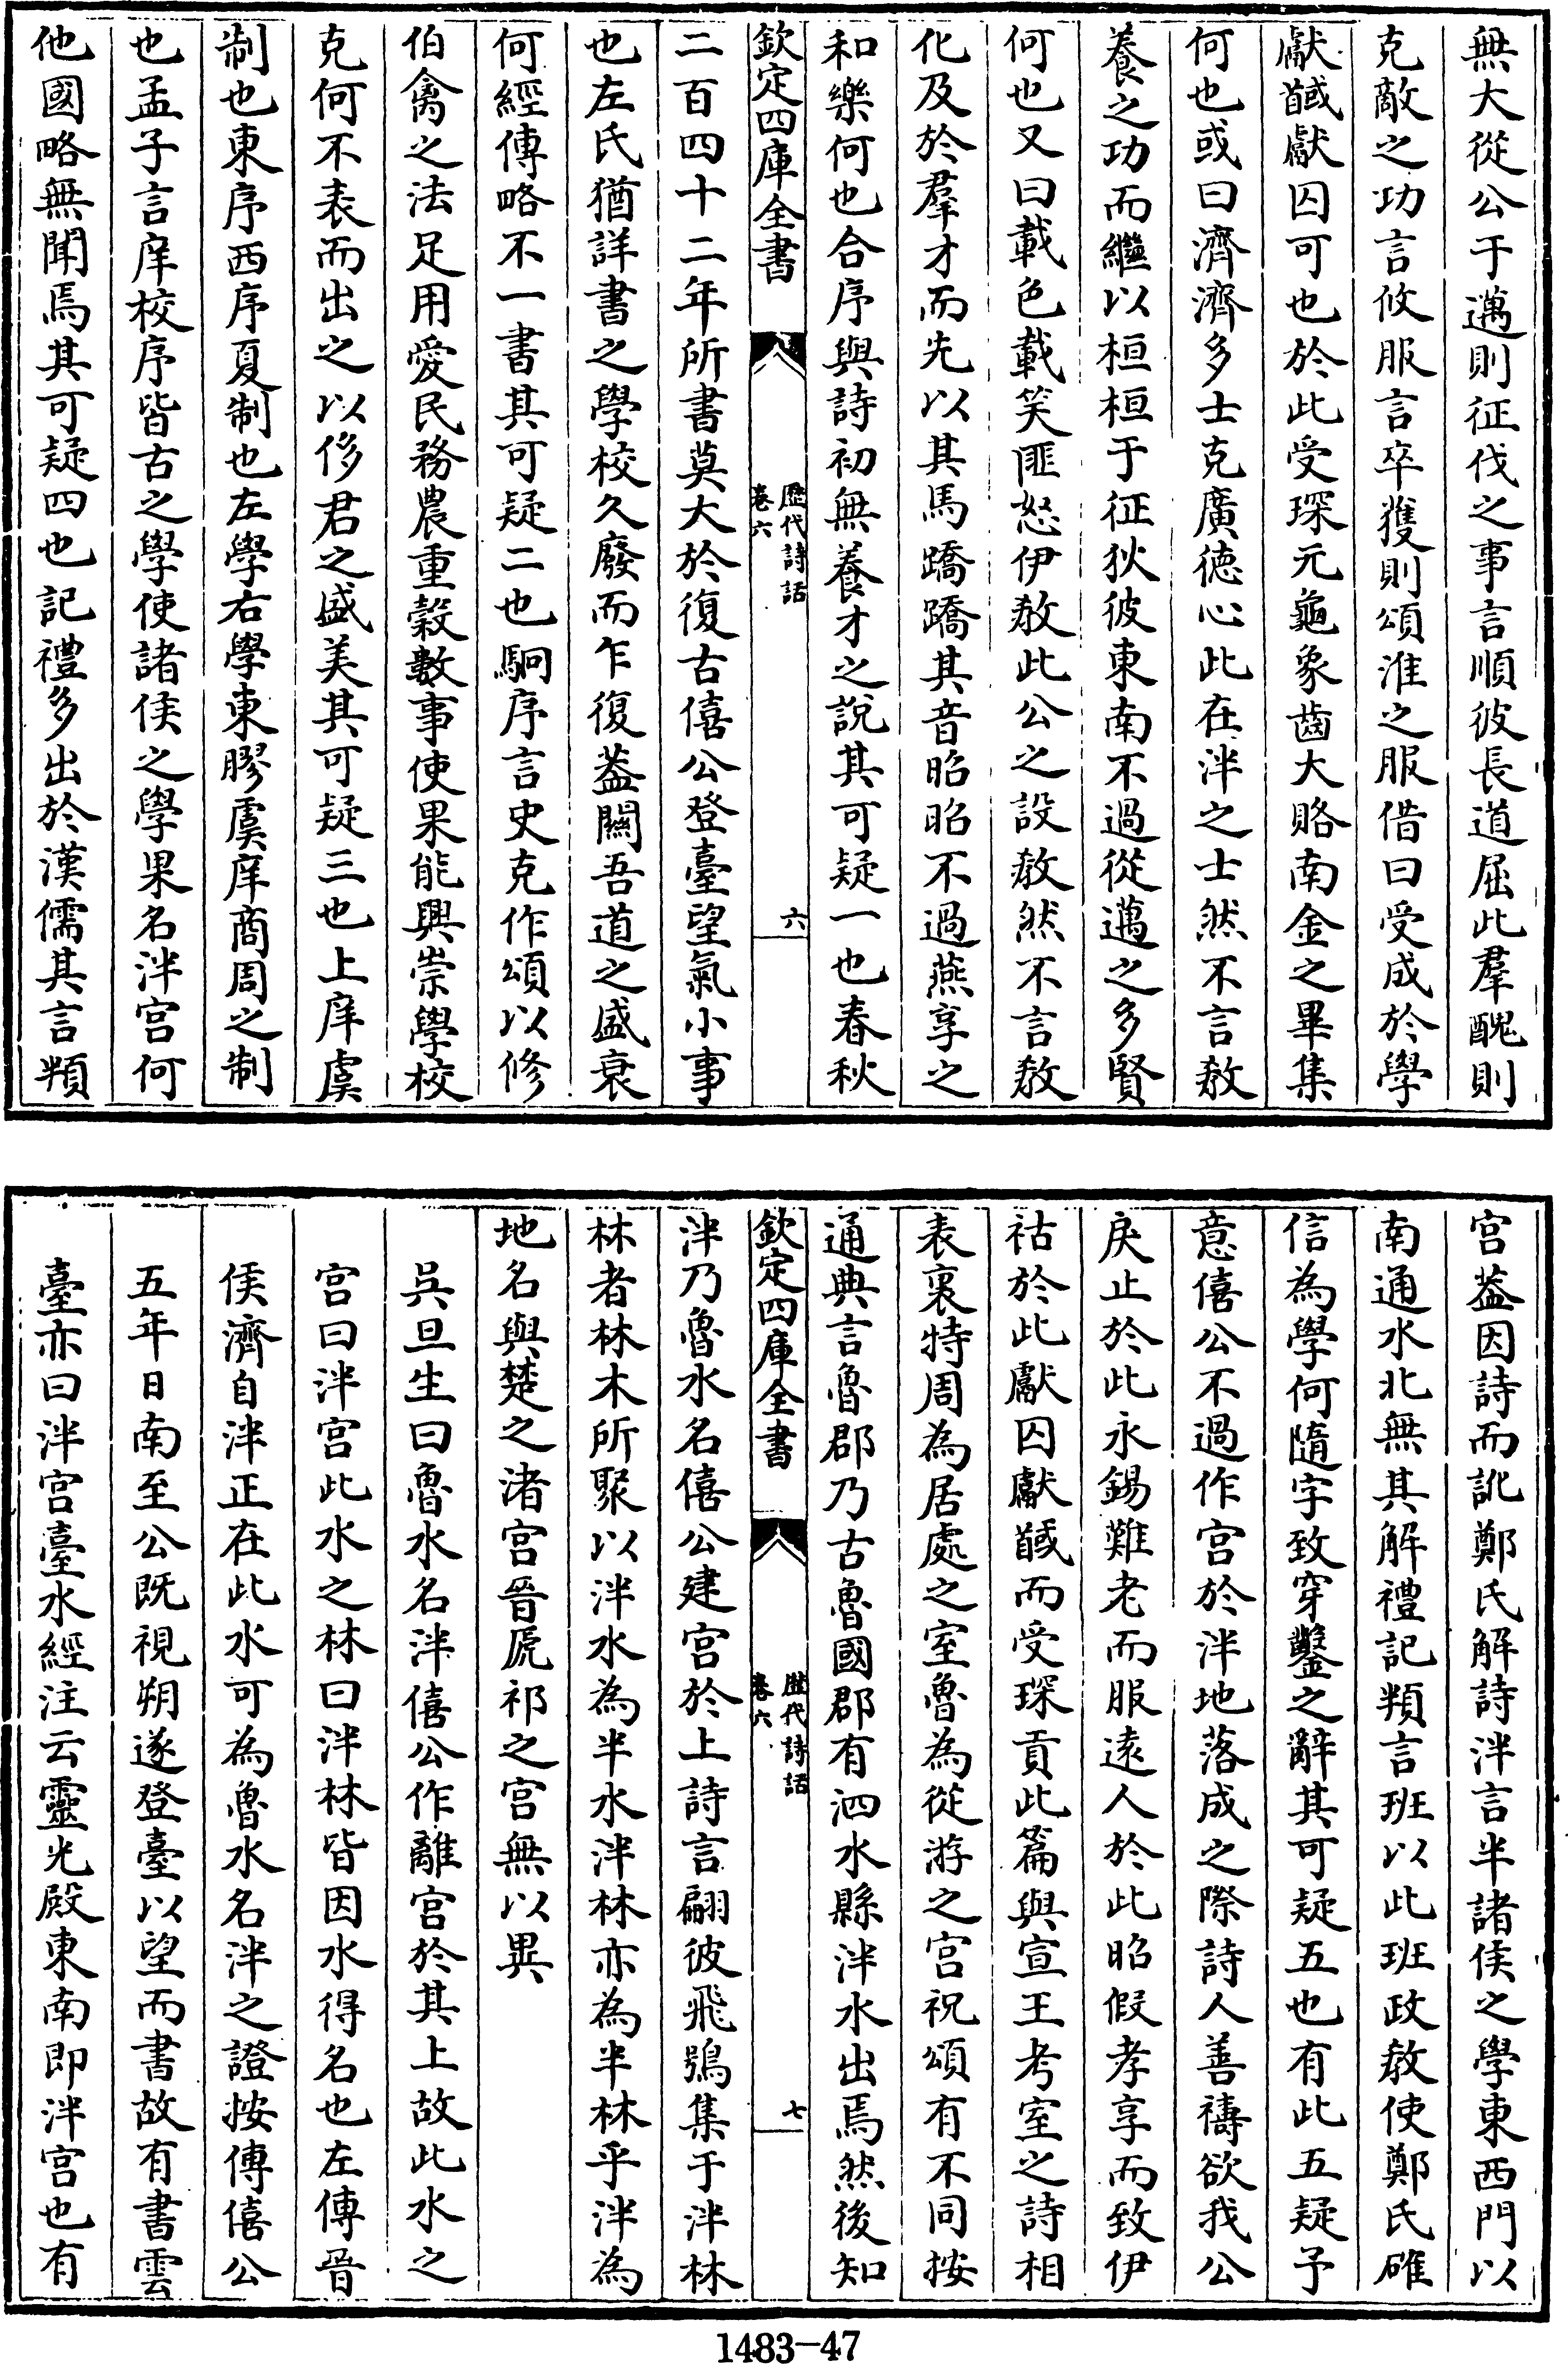 無大從公于邁則征伐之事言順彼長道屈此羣醜則
克敵之功言攸服言卒獲則頌淮之服借曰受成於學
獻馘獻囚可也於此受琛元龜象齒大賂南金之畢集
何也或曰濟濟多士克廣德心此在泮之士然不言敎
養之功而繼以桓桓于征狄彼東南不過從邁之多賢
何也又曰載色載笑匪怒伊敎此公之設敎然不言敎
化及於羣才而先以其馬蹻蹻其音昭昭不過燕享之
和樂何也合序與詩初無養才之說其可疑一也春秋
欽定四庫全書
歷代詩話
卷六
六
二百四十二年所書莫大於復古僖公登臺望氣小事
也左氏猶詳書之學校久廢而乍復葢關吾道之盛衰
何經傳略不一書其可疑二也駉序言史克作頌以修
伯禽之法足用愛民務農重穀數事使果能興崇學校
克何不表而出之以侈君之盛美其可疑三也上庠虞
制也東序西序夏制也左學右學東膠虞庠商周之制
也孟子言庠校序皆古之學使諸侯之學果名泮宮何
他國略無聞焉其可疑四也記禮多出於漢儒其言頖
宮葢因詩而訛鄭氏解詩泮言半諸侯之學東西門以
南通水北無其解禮記頖言班以此班政敎使鄭氏確
信為學何隨字致穿鑿之辭其可疑五也有此五疑予
意僖公不過作宮於泮地落成之際詩人善禱欲我公
戾止於此永錫難老而服遠人於此昭假孝享而致伊
祜於此獻囚獻馘而受琛貢此篇與宣王考室之詩相
表裏特周為居處之室魯為從游之宮祝頌有不同按
通典言魯郡乃古魯國郡有泗水縣泮水出焉然後知
欽定四庫全書
歷代詩話
卷六
七
泮乃魯水名僖公建宮於上詩言翩彼飛鴞集于泮林
林者林木所聚以泮水為半水泮林亦為半林乎泮為
地名與楚之渚宮晉虒祁之宮無以異
吳旦生曰魯水名泮僖公作離宮於其上故此水之
宮曰泮宮此水之林曰泮林皆因水得名也左傳晉
侯濟自泮正在此水可為魯水名泮之證按傳僖公
五年日南至公既視朔遂登臺以望而書故有書雲
臺亦曰泮宮臺水經注云靈光殿東南即泮宮也有
1483-47